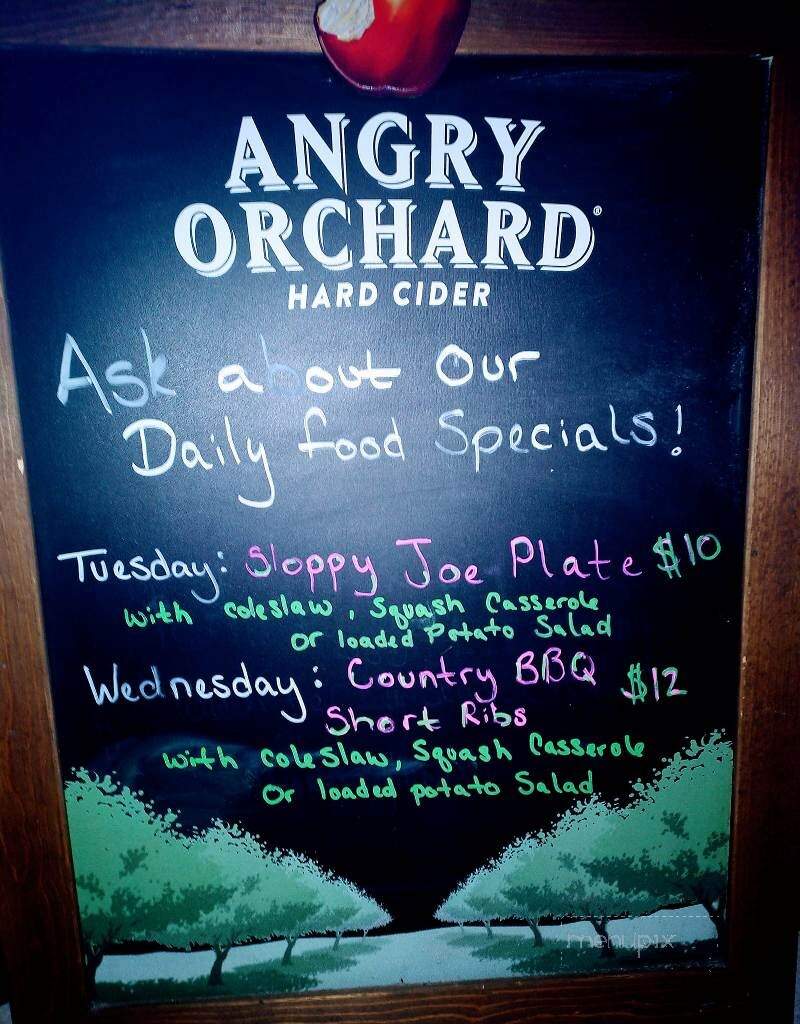 ANGRY
ORCHARD®
HARD CIDER
Ask about our
Daily food Specials!
Tuesday: Sloppy Joe Plate $10
with coleslaw, Squash Casserole
or loaded Potato Salad
Wednesday: Country BBQ $12
Short Ribs
with coleslaw, Squash Casserole
or loaded potato Salad
menupix